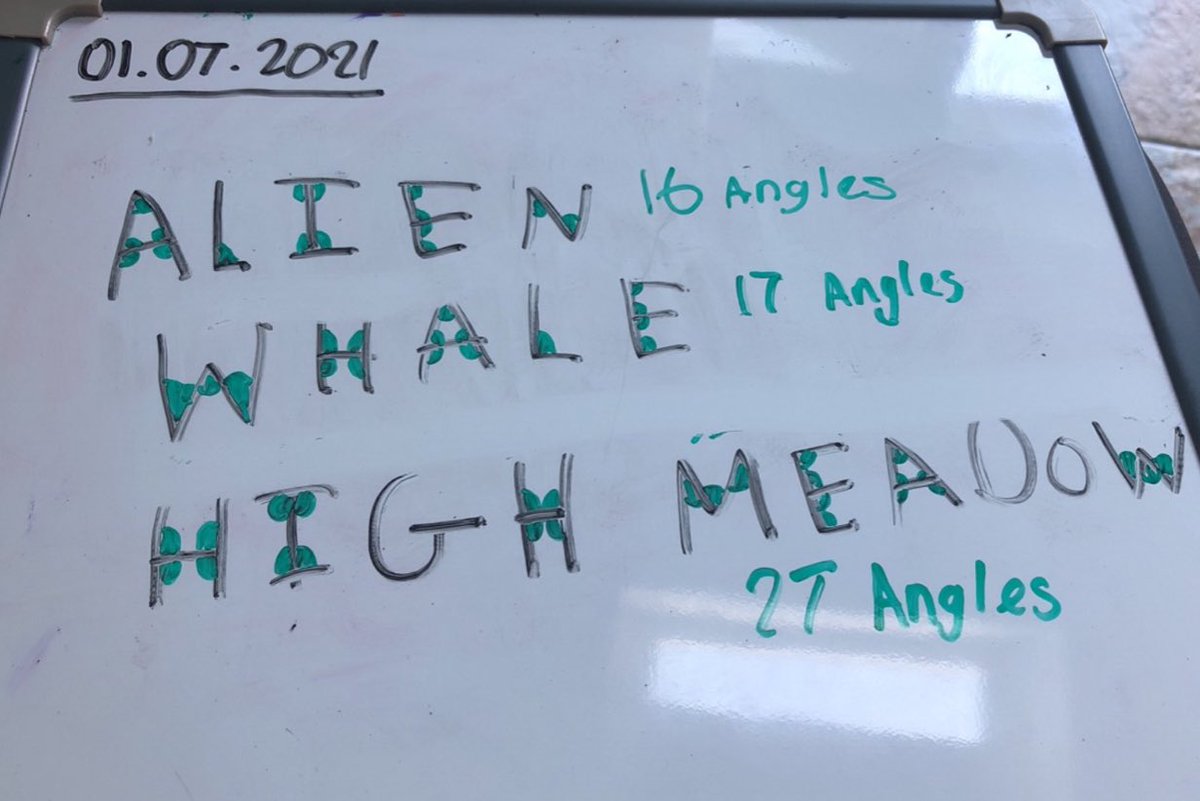 01.07.2021
ALIEN 16 Angles
WHALE 17 Angles
HIGH MEADOW
27 Angles